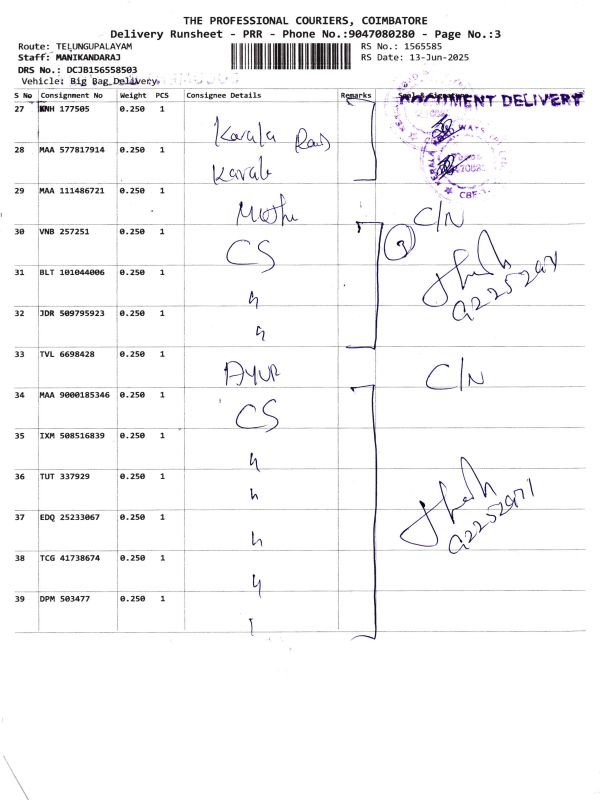 THE PROFESSIONAL COURIERS, COIMBATORE
Delivery Runsheet - PRR - Phone No.:9047080280 - Page No.:3
Route: TELUNGUPALAYAM RS No.: 1565585
Staff: MANIKANDARAJ RS Date: 13-Jun-2025
DRS No.: DCJB156558503
Vehicle: Big Bag Delivery
S No Consignment No Weight PCS Consignee Details Remarks
DELIVERY
27 KNH 177505 0.250 1 Kerala
28 MAA 577817914 0.250 1
29 MAA 111486721 0.250 1 C/N
30 VNB 257251 0.250 1 CS 3
31 BLT 101044006 0.250 1 "
32 JDR 509795923 0.250 1 "
33 TVL 6698428 0.250 1 C/N
34 MAA 9000185346 0.250 1 CS
35 IXM 508516839 0.250 1 "
36 TUT 337929 0.250 1 "
37 EDQ 25233067 0.250 1 "
38 TCG 41738674 0.250 1 "
39 DPM 503477 0.250 1